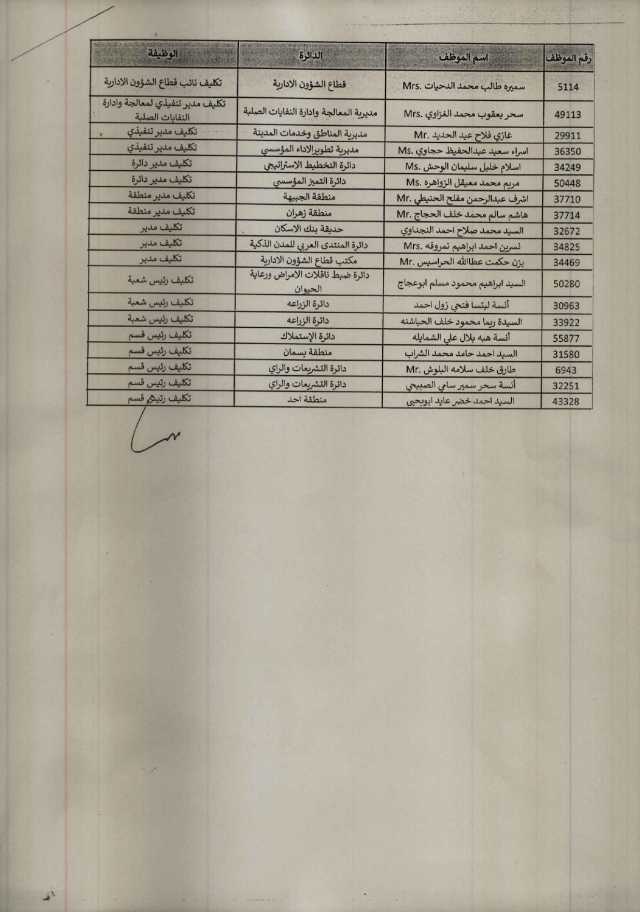 رقم الموظف	اسم الموظف	الدائرة	الوظيفة
5114	سميره طالب محمد الدحيات .Mrs	قطاع الشؤون الادارية	تكليف نائب قطاع الشؤون الادارية
49113	سحر يعقوب محمد الغزاوي .Mrs	مديرية المعالجة وادارة النفايات الصلبة	تكليف مدير تنفيذي لمعالجة وادارة النفايات الصلبة
29911	غازي فلاح عبد الحديد .Mr	مديرية المناطق وخدمات المدينة	تكليف مدير تنفيذي
36350	اسراء سعيد عبدالحفيظ حجاوي .Ms	مديرية تطويرالاداء المؤسسي	تكليف مدير تنفيذي
34249	اسلام خليل سليمان الوحش .Ms	دائرة التخطيط الاستراتيجي	تكليف مدير دائرة
50448	مريم محمد معيقل الزواهره .Ms	دائرة التميز المؤسسي	تكليف مدير دائرة
37710	اشرف عبدالرحمن مفلح الحنيطي .Mr	منطقة الجبيهة	تكليف مدير منطقة
37714	هاشم سالم محمد خلف الحجاج .Mr	منطقة زهران	تكليف مدير منطقة
32672	السيد محمد صلاح احمد النجداوي	حديقة بنك الاسكان	تكليف مدير
34825	نسرين احمد ابراهيم تمروقه .Mrs	دائرة المنتدى العربي للمدن الذكية	تكليف مدير
34469	يزن حكمت عطاالله الحراسيس .Mr	مكتب قطاع الشؤون الادارية	تكليف مدير
50280	السيد ابراهيم محمود مسلم ابوعجاج	دائرة ضبط ناقلات الامراض ورعاية الحيوان	تكليف رئيس شعبة
30963	آنسة ليتسا فتحي زول احمد	دائرة الزراعه	تكليف رئيس شعبة
33922	السيدة ريما محمود خلف الحباشنه	دائرة الزراعه	تكليف رئيس شعبة
55877	آنسة هبه بلال علي الشمايله	دائرة الإستملاك	تكليف رئيس قسم
31580	السيد احمد حامد محمد الشراب	منطقة بسمان	تكليف رئيس قسم
6943	طارق خلف سلامه البلوش .Mr	دائرة التشريعات والراي	تكليف رئيس قسم
32251	آنسة سحر سمير سامي الصبيحي	دائرة التشريعات والراي	تكليف رئيس قسم
43328	السيد احمد خضر عايد ابويحيى	منطقة احد	تكليف رئيس قسم